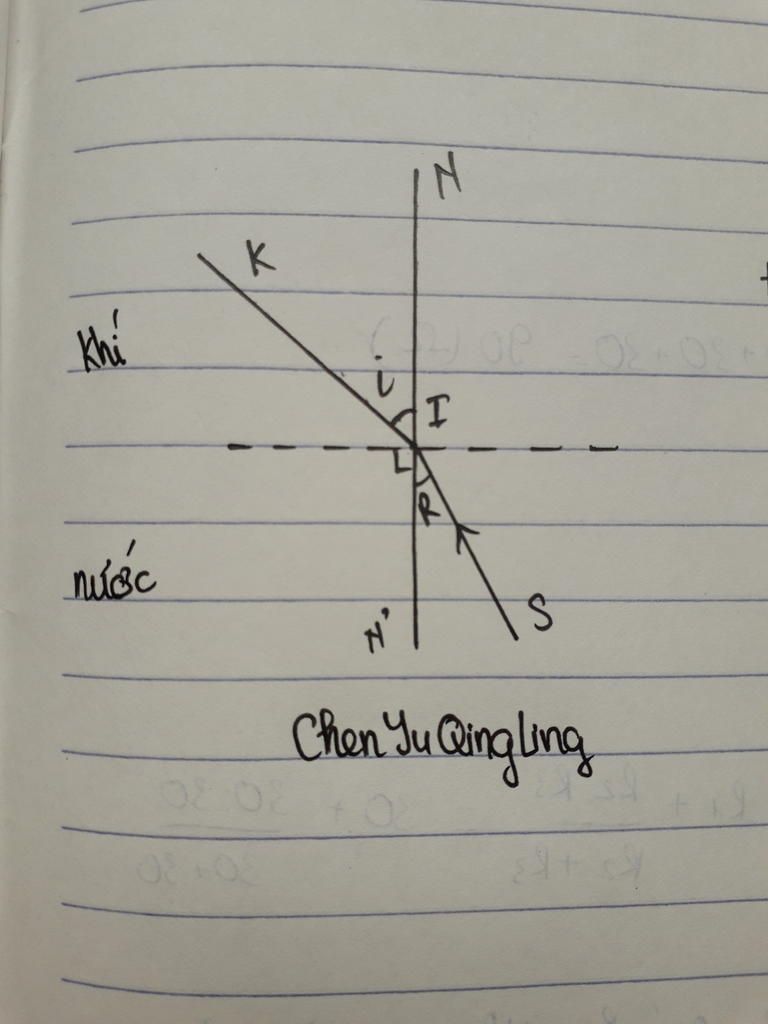 N
K
khí
i
I
R
nước
S
N'
Chen Yu Qing Ling